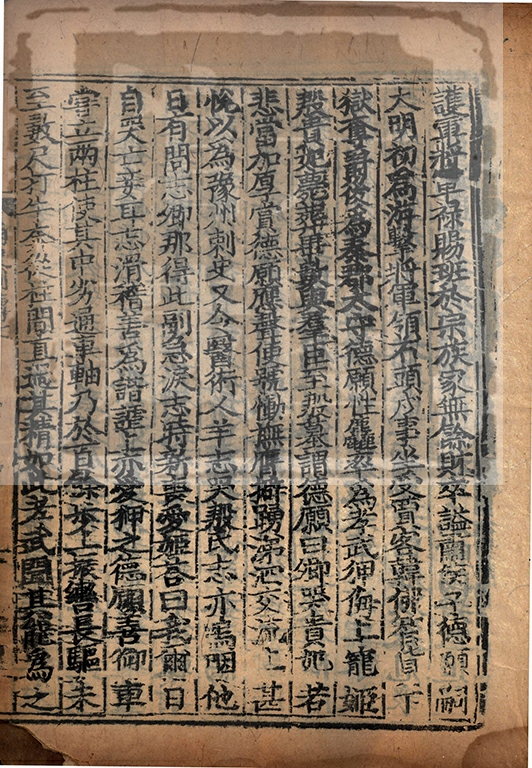 護軍將軍祿賜班於宗族家無餘財卒謚肅侯子德願嗣
大明初為游擊將軍領石頭戍事坐受賈客韓佛智貨下
獄奪爵後為秦郡太守德願性麤率為孝武狎侮上寵姬
殷貴妃薨葬畢數與羣臣至殷墓謂德願曰卿哭貴妃若
悲當加厚賞德願應聲便號慟撫膺擗踊涕泗交流上甚
悅以為豫州刺史又令醫術人羊志哭殷氏志亦嗚咽他
日有問志卿那得此副急淚志時新喪愛姬荅曰我爾日
自哭亡妾耳志滑稽善為諧謔上亦愛狎之德願善御車
甞立兩柱使其中劣通車軸乃於百餘步上振轡長驅未
至數尺打牛奔從柱間直過其精如此孝武聞其能為之